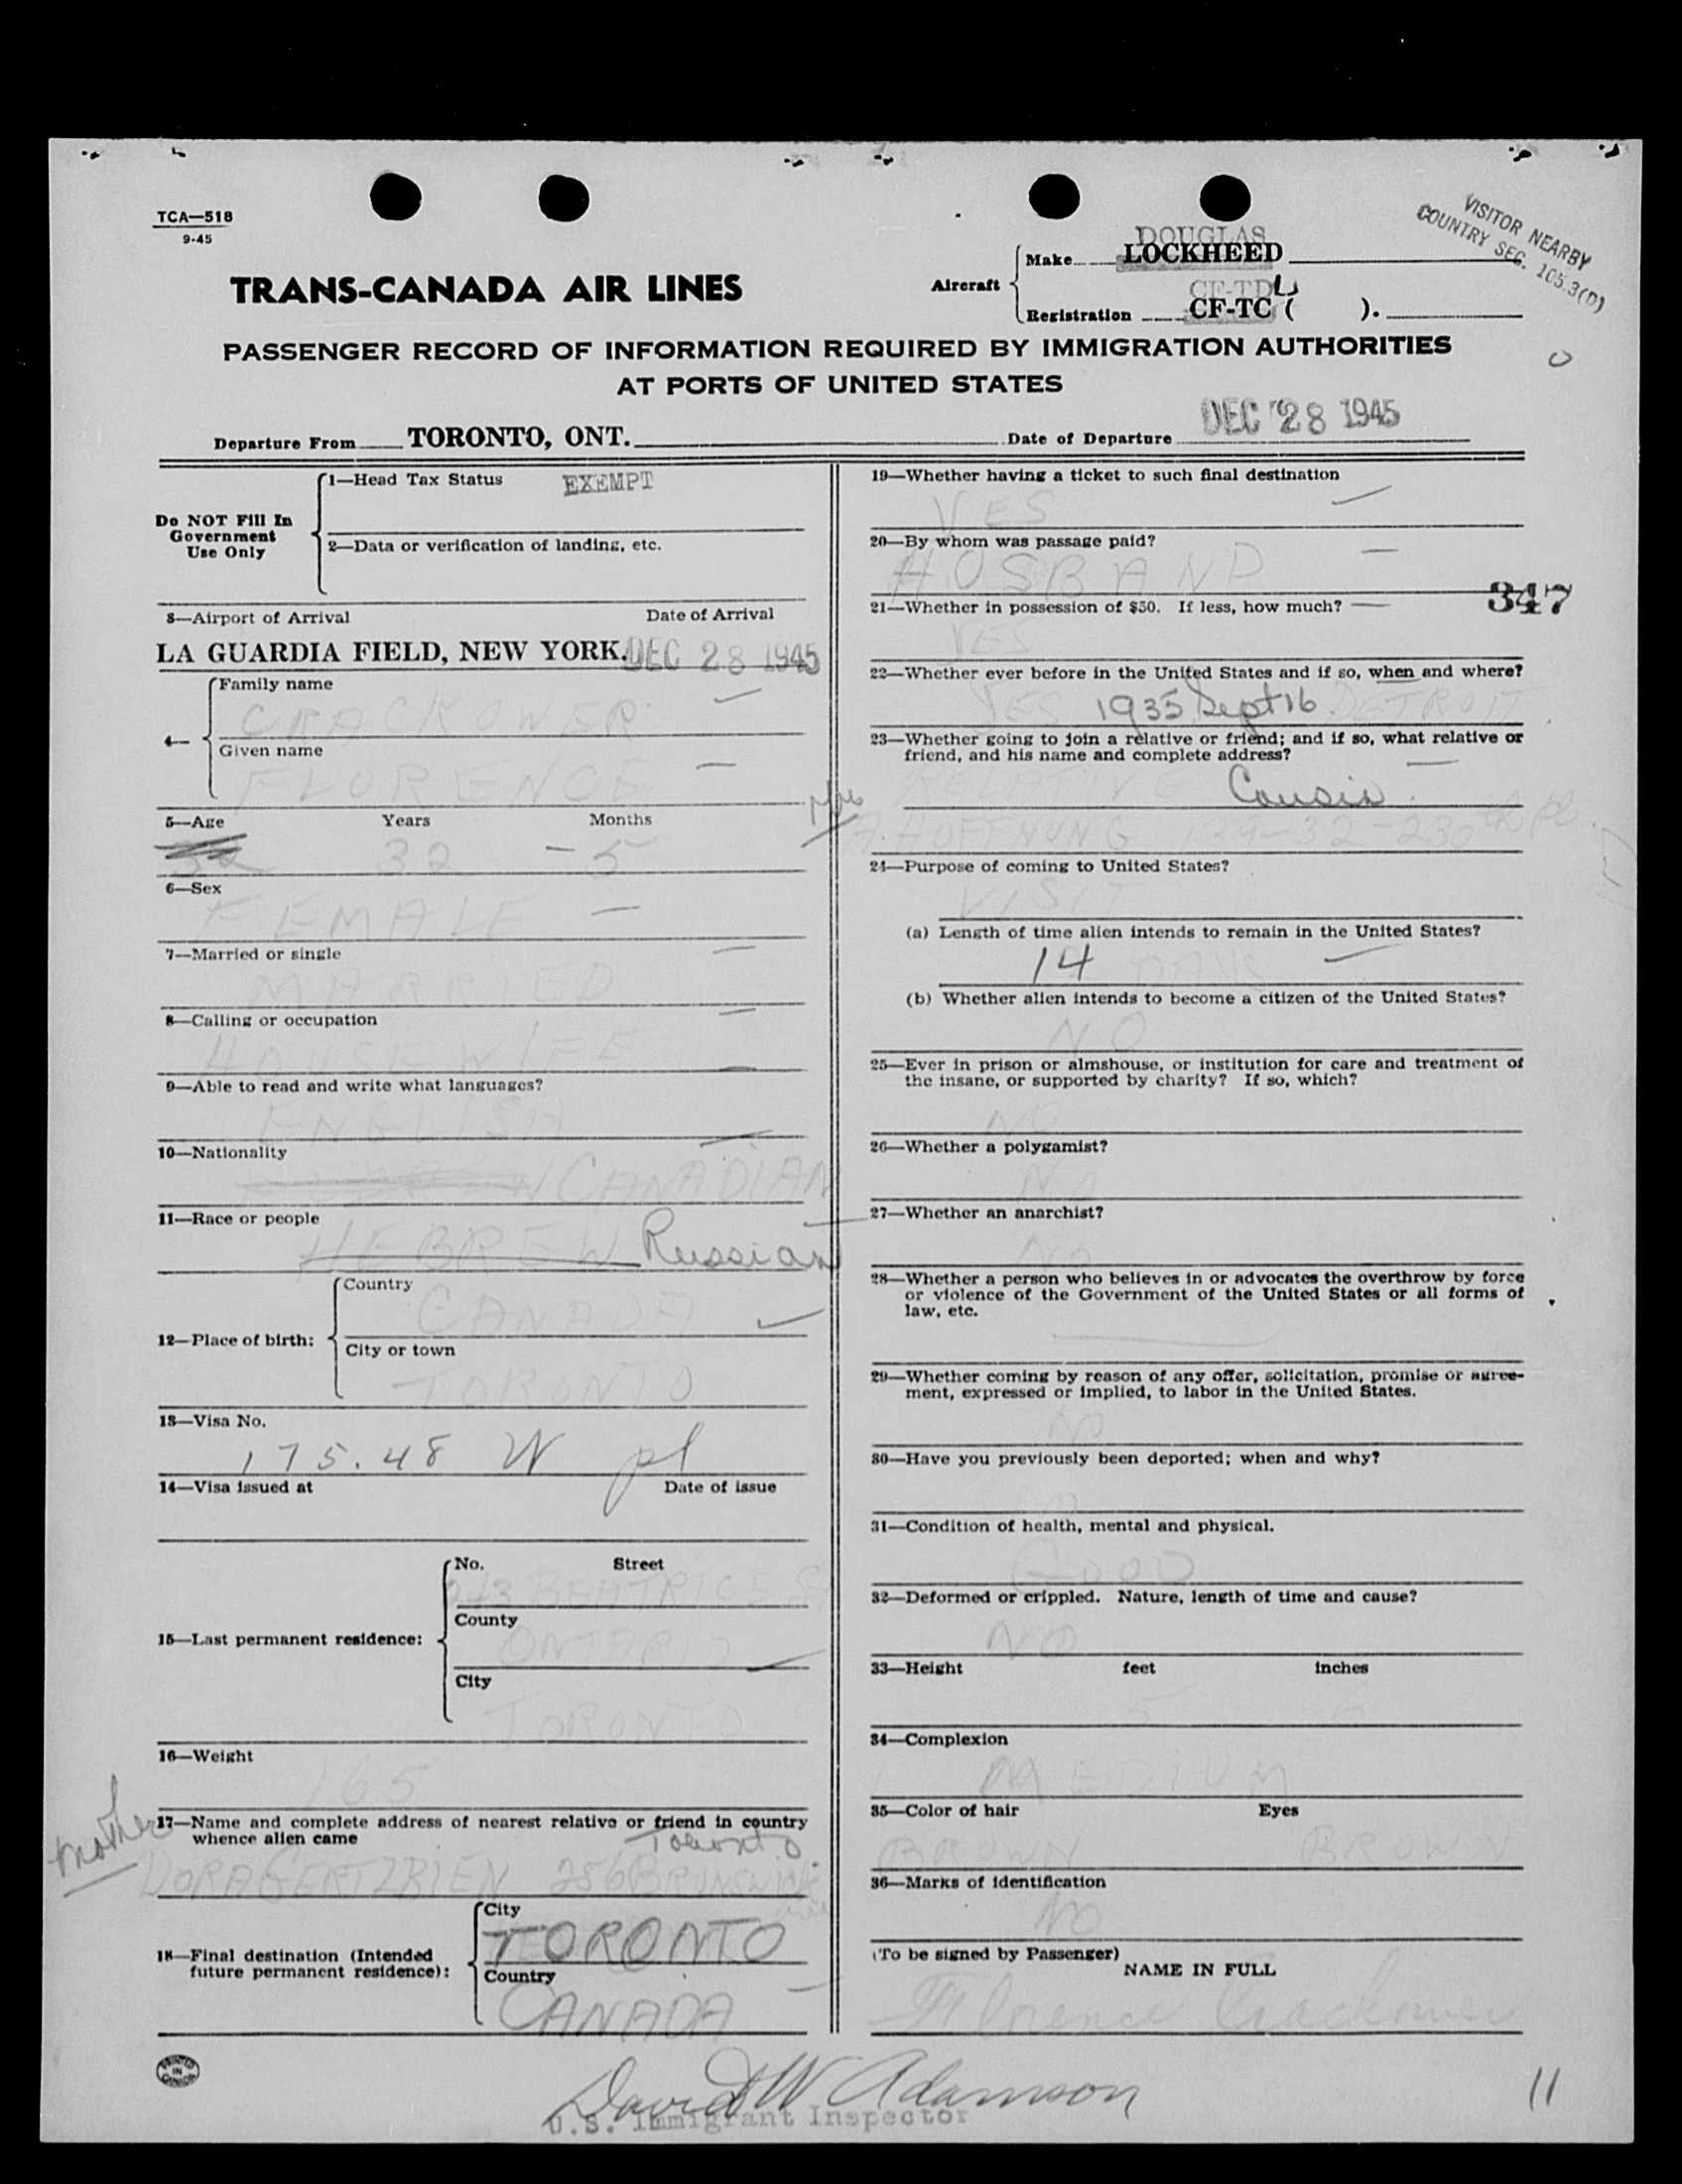 TCA—518
9-45
VISITOR NEARBY
COUNTRY SEC. 105.3(D)
TRANS-CANADA AIR LINES
Aircraft
Make
DOUGLAS
LOCKHEED
Registration
CF-TDL
CF-TC ( ).
PASSENGER RECORD OF INFORMATION REQUIRED BY IMMIGRATION AUTHORITIES
AT PORTS OF UNITED STATES
Departure From TORONTO, ONT. Date of Departure DEC 28 1945
Do NOT Fill In
Government
Use Only
1—Head Tax Status EXEMPT
2—Data or verification of landing, etc.
3—Airport of Arrival Date of Arrival
LA GUARDIA FIELD, NEW YORK. DEC 28 1945
4—
Family name
CRACKOWER
Given name
FLORENCE
5—Age Years Months
32 32 - 5
6—Sex
FEMALE
7—Married or single
MARRIED
8—Calling or occupation
HOUSEWIFE
9—Able to read and write what languages?
ENGLISH
10—Nationality
CANADIAN
11—Race or people
HEBREW Russian
12—Place of birth:
Country
CANADA
City or town
TORONTO
13—Visa No.
175.48 W pl
14—Visa issued at Date of issue
15—Last permanent residence:
No. Street
BEATRICE St
County
ONTARIO
City
TORONTO
16—Weight
165
mother
17—Name and complete address of nearest relative or friend in country
whence alien came
Toronto.
DORA 256 BRUNSWICK
ave
18—Final destination (Intended
future permanent residence):
City
TORONTO
Country
CANADA
19—Whether having a ticket to such final destination
YES
20—By whom was passage paid?
HUSBAND
347
21—Whether in possession of $50. If less, how much?
YES
22—Whether ever before in the United States and if so, when and where?
YES 1935 Sept 16 DETROIT
23—Whether going to join a relative or friend; and if so, what relative or
friend, and his name and complete address?
RELATIVE Cousin
HOFFNUNG
24—Purpose of coming to United States?
VISIT
(a) Length of time alien intends to remain in the United States?
14 DAYS
(b) Whether alien intends to become a citizen of the United States?
NO
25—Ever in prison or almshouse, or institution for care and treatment of
the insane, or supported by charity? If so, which?
NO
26—Whether a polygamist?
NO
27—Whether an anarchist?
NO
28—Whether a person who believes in or advocates the overthrow by force
or violence of the Government of the United States or all forms of
law, etc.
29—Whether coming by reason of any offer, solicitation, promise or agree-
ment, expressed or implied, to labor in the United States.
NO
30—Have you previously been deported; when and why?
NO
31—Condition of health, mental and physical.
GOOD
32—Deformed or crippled. Nature, length of time and cause?
NO
33—Height feet inches
5
34—Complexion
MEDIUM
35—Color of hair Eyes
BROWN BROWN
36—Marks of identification
NO
(To be signed by Passenger)
NAME IN FULL
Florence Crackower
PRINTED IN CANADA
David W Adamson
U.S. Immigrant Inspector
11